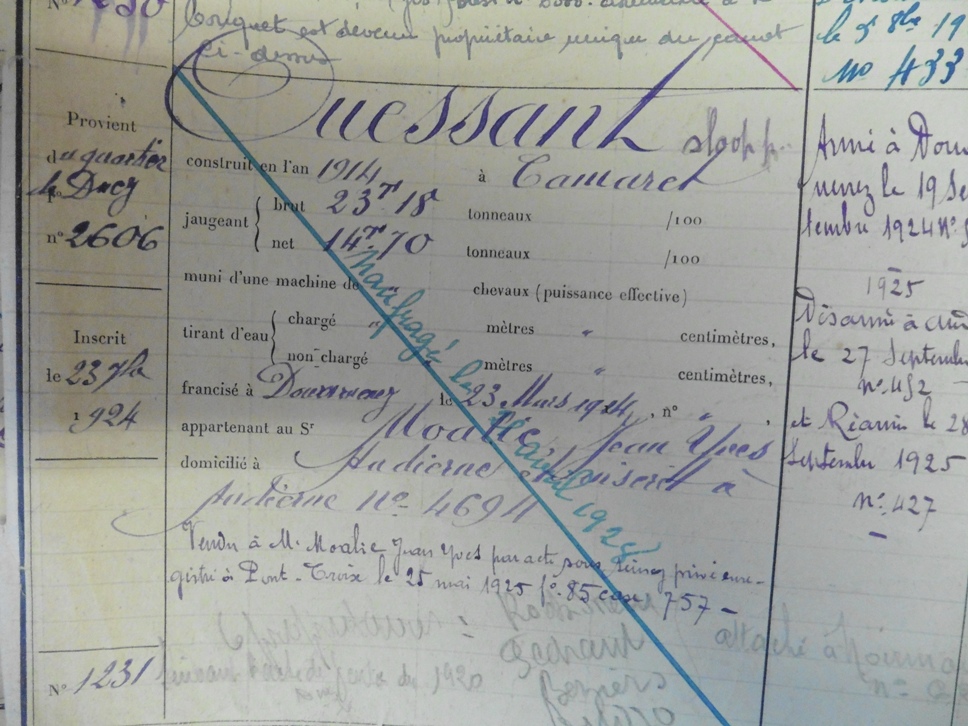 Couquet est devenu propriétaire unique du canot
ci-dessus
le 5 8bre 19
no 433
Provient
du quartier
de Dnez
n° 2606
Inscrit
le 23 7bre
1924
N° 1231
Ouessant sloop p.
construit en l'an 1914 à Camaret
jaugeant { brut 23Tx 18 tonneaux /100
net 14Tx 70 tonneaux /100
muni d'une machine de " chevaux (puissance effective)
tirant d'eau { chargé " mètres " centimètres,
non-chargé mètres " centimètres,
francisé à Douarnenez le 23 Mars 1914, n° "
appartenant au Sr Moalic, Jean Yves
domicilié à Audierne, inscrit à
Audierne n° 4694
Vendu à M. Moalic Jean Yves par acte sous seings privé enre-
gistré à Pont-Croix le 25 mai 1925 f° 85 case 757 -
naufragé le avril 1928
Armé à Douar
nenez le 19 Sep
tembre 1924 N°
1925
Désarmé à
le 27 Septembre
n° 452
et Réarmé le 28
Septembre 1925
n° 427
attaché à
1920